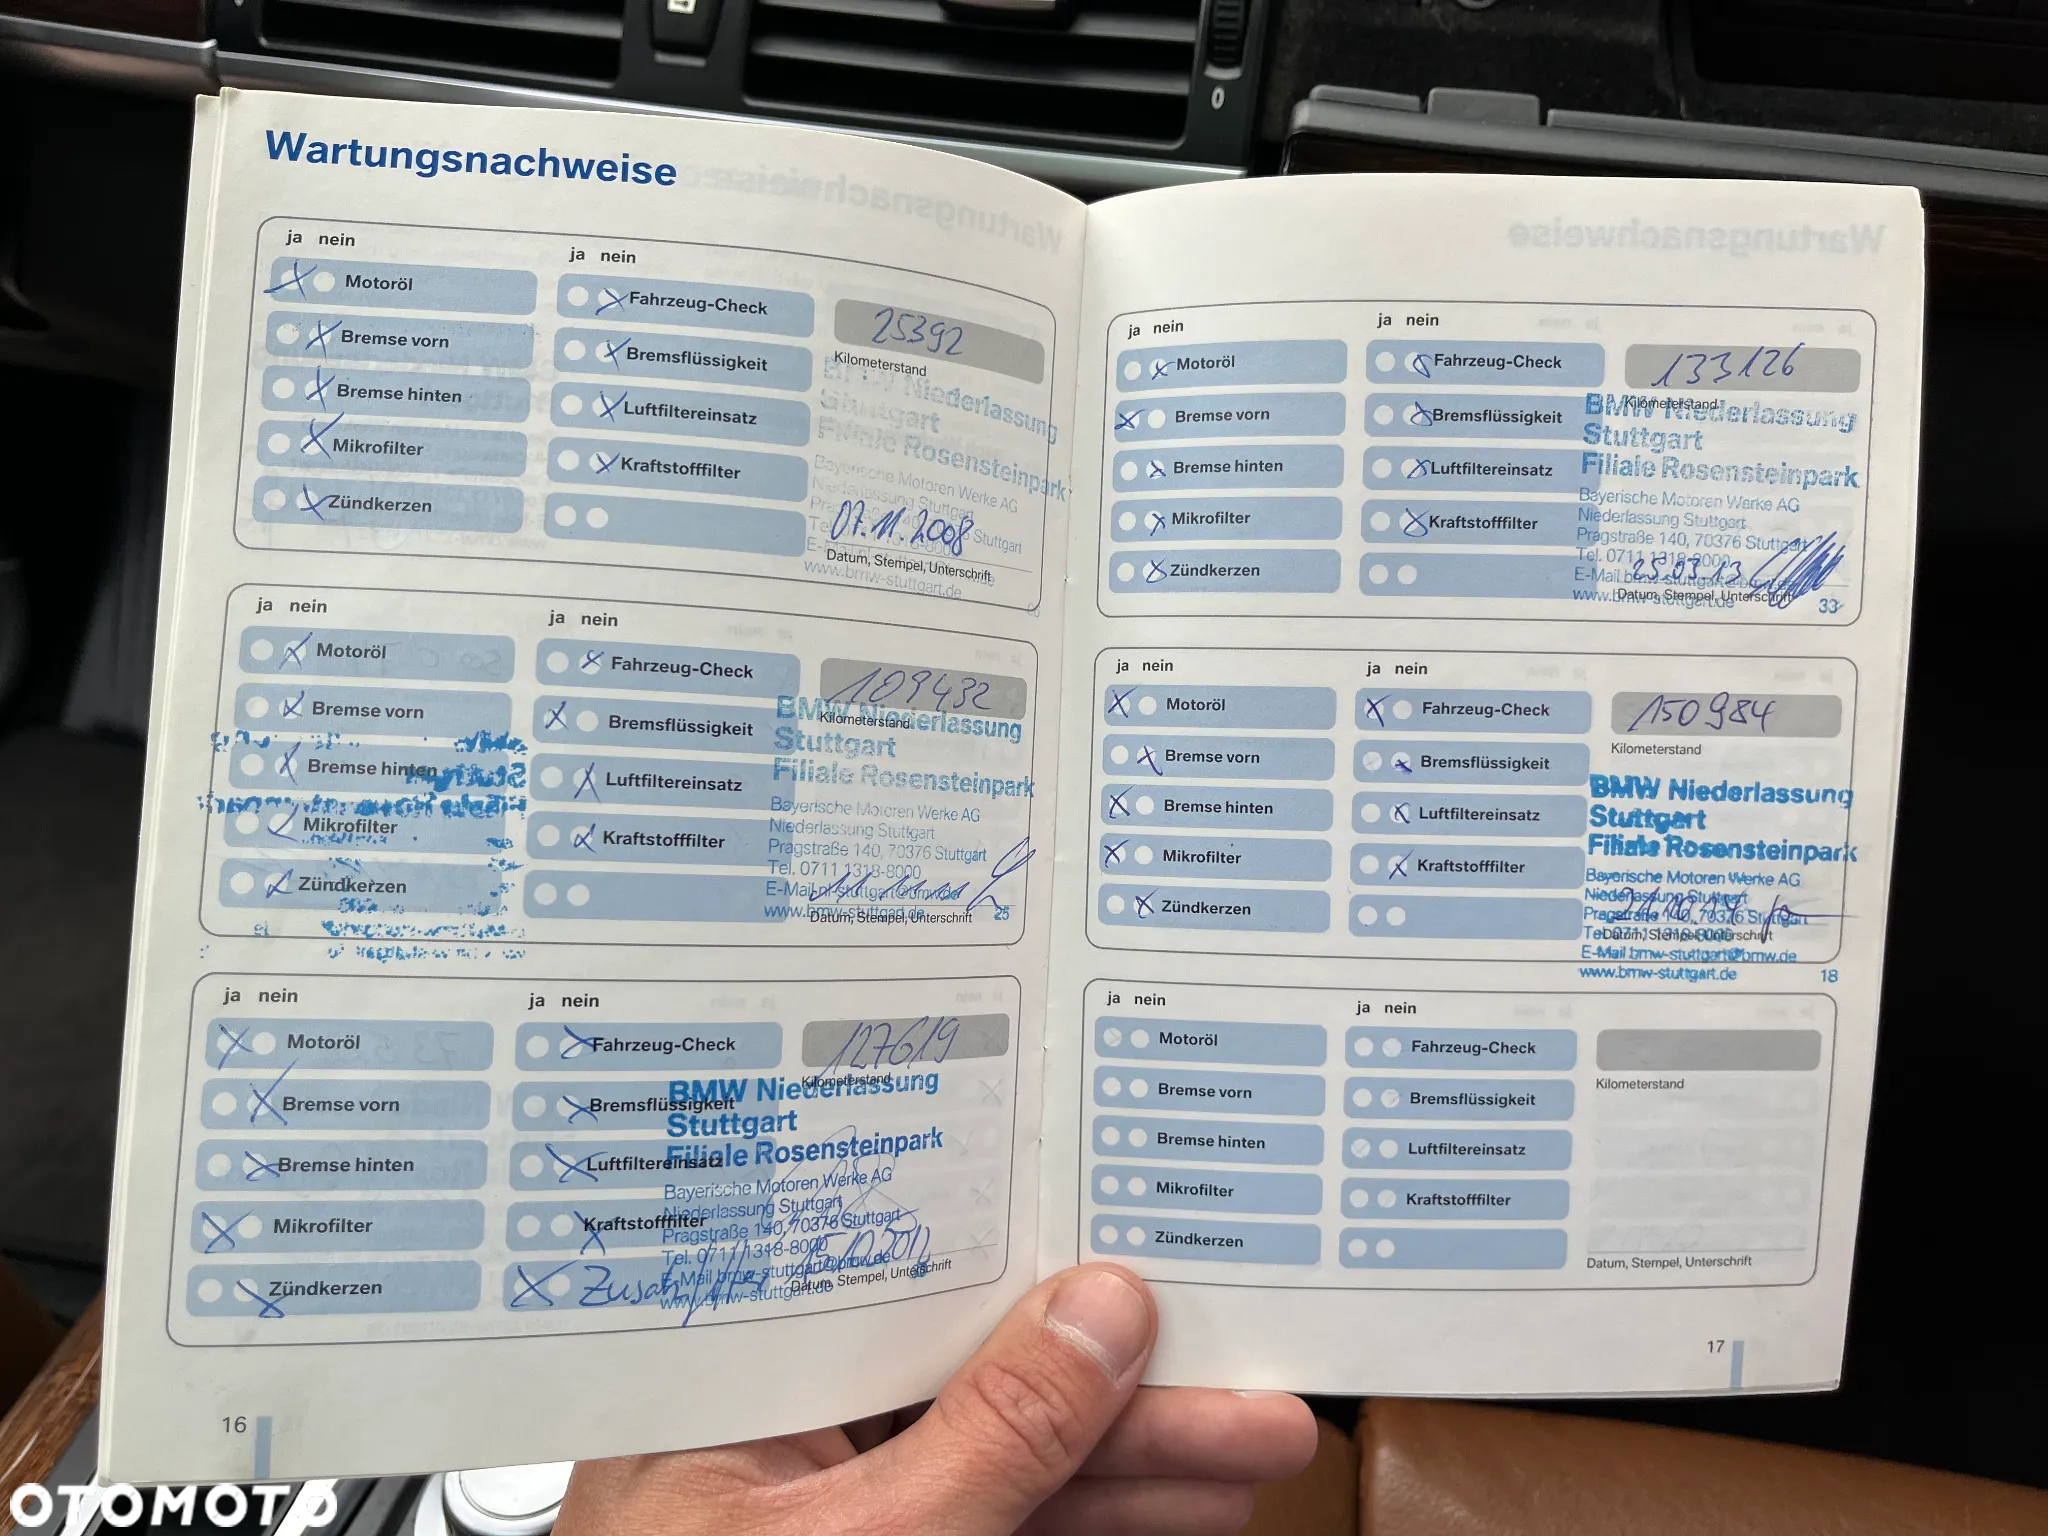 Wartungsnachweise
ja nein
ja nein
Motoröl
Fahrzeug-Check
25392
Bremse vorn
Bremsflüssigkeit
Kilometerstand
Bremse hinten
Luftfiltereinsatz
BMW Niederlassung
Stuttgart
Filiale Rosensteinpark
Mikrofilter
Kraftstofffilter
Bayerische Motoren Werke AG
Niederlassung Stuttgart
Zündkerzen
07.11.2008
Datum, Stempel, Unterschrift
www.bmw-stuttgart.de
ja nein
ja nein
Motoröl
Fahrzeug-Check
109432
Bremse vorn
Bremsflüssigkeit
Kilometerstand
Bremse hinten
Luftfiltereinsatz
BMW Niederlassung
Stuttgart
Filiale Rosensteinpark
Mikrofilter
Kraftstofffilter
Bayerische Motoren Werke AG
Niederlassung Stuttgart
Pragstraße 140, 70376 Stuttgart
Tel. 0711 1318-8000
Zündkerzen
www.bmw-stuttgart.de
Datum, Stempel, Unterschrift
25
ja nein
ja nein
Motoröl
Fahrzeug-Check
127619
Bremse vorn
Bremsflüssigkeit
Kilometerstand
Bremse hinten
Luftfiltereinsatz
BMW Niederlassung
Stuttgart
Filiale Rosensteinpark
Mikrofilter
Kraftstofffilter
Bayerische Motoren Werke AG
Niederlassung Stuttgart
Pragstraße 140, 70376 Stuttgart
Tel. 0711/1318-8000
Zündkerzen
E-Mail bmw-stuttgart@bmw.de
www.bmw-stuttgart.de
Datum, Stempel, Unterschrift
16
ja nein
ja nein
Motoröl
Fahrzeug-Check
133126
Bremse vorn
Bremsflüssigkeit
Kilometerstand
Bremse hinten
Luftfiltereinsatz
BMW Niederlassung
Stuttgart
Filiale Rosensteinpark
Mikrofilter
Kraftstofffilter
Bayerische Motoren Werke AG
Niederlassung Stuttgart
Pragstraße 140, 70376 Stuttgart
Tel. 0711 1318-8000
Zündkerzen
25.03.13
E-Mail bmw-stuttgart@bmw.de
www.bmw-stuttgart.de
Datum, Stempel, Unterschrift
33
ja nein
ja nein
Motoröl
Fahrzeug-Check
150984
Bremse vorn
Bremsflüssigkeit
Kilometerstand
Bremse hinten
Luftfiltereinsatz
BMW Niederlassung
Stuttgart
Filiale Rosensteinpark
Mikrofilter
Kraftstofffilter
Bayerische Motoren Werke AG
Niederlassung Stuttgart
Pragstraße 140, 70376 Stuttgart
Tel. 0711 1318-8000
Zündkerzen
Datum, Stempel, Unterschrift
E-Mail bmw-stuttgart@bmw.de
www.bmw-stuttgart.de
18
ja nein
ja nein
Motoröl
Fahrzeug-Check
Bremse vorn
Bremsflüssigkeit
Kilometerstand
Bremse hinten
Luftfiltereinsatz
Mikrofilter
Kraftstofffilter
Zündkerzen
Datum, Stempel, Unterschrift
17
0
OTOMOTO